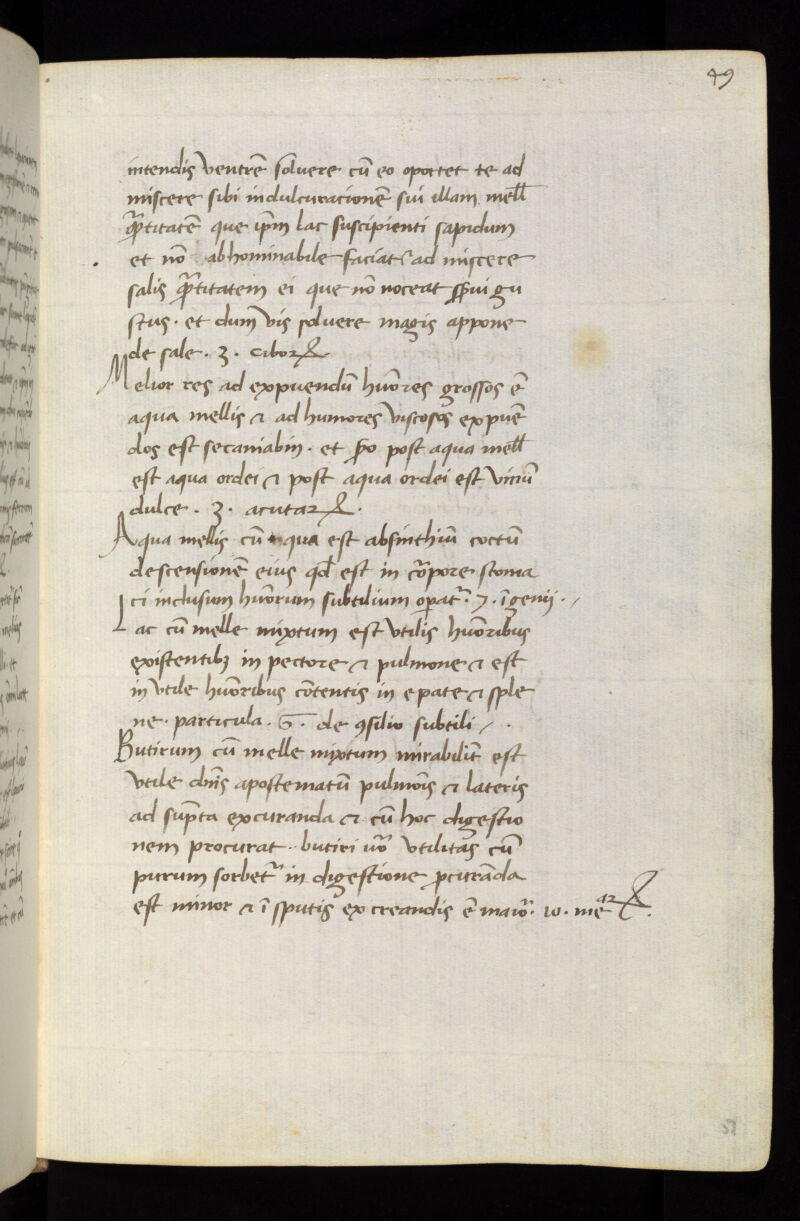 49
intendis ventrē soluere cū eo oportet te ad
miscere sibi indulcuracionē sui illam mell
q̄ntitatē que ip̄m lac suscipienti sapidum
et nō abhominabile faciat & ad miscere
salis q̄ntitatem ei que nō noceat sui gu
stus · et dum vis soluere magis appone
de sale · 3 · cibor&
Melior res ad expuendū huōres grossos ē
aqua mellis & ad humores viscosos expuē
dos est secaniabin · et post aqua mell
est aqua ordei & post aqua ordei est vinū
dulce · 3 · acutar& ·
Aqua mellis cū qua est absinthiū coctū
descensionē eius qd̄ est in corpore stoma
ci inclusum huōrum subtilium opat · 7 · īgenij ·
Lac cū melle mixtum est vtilis huōribus
existentibꝫ in pectore & pulmone & est
in vtile huōribus cōtentis in epate & sple
ne · particula · 6 · de ꝯsilio subtili
Butirum cū melle mixtum mirabilit̄ est
vtile dn̄is apostematū pulmōis & lateris
ad sup̄ta excuranda & cū hoc digestio
nem procurat · butiri uō vtilitas cū
purum sorbet in digestione pcurāda
est minor & ī sputis ex creandis ē maior · 10 · mear&